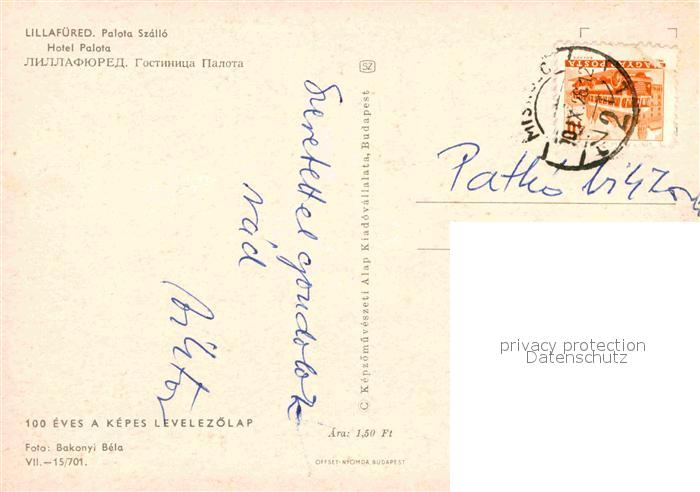 LILLAFÜRED. Palota Szálló
Hotel Palota
ЛИЛЛАФЮРЕД. Гостиница Палота
SZ
MAGYAR POSTA
MISKOLC
2
Szeretettel gondolok
rád
© Képzőművészeti Alap Kiadóvállalata, Budapest
Patkó
privacy protection
Datenschutz
100 ÉVES A KÉPES LEVELEZŐLAP
Foto: Bakonyi Béla
VII.—15/701.
Ára: 1,50 Ft
OFFSET-NYOMDA, BUDAPEST